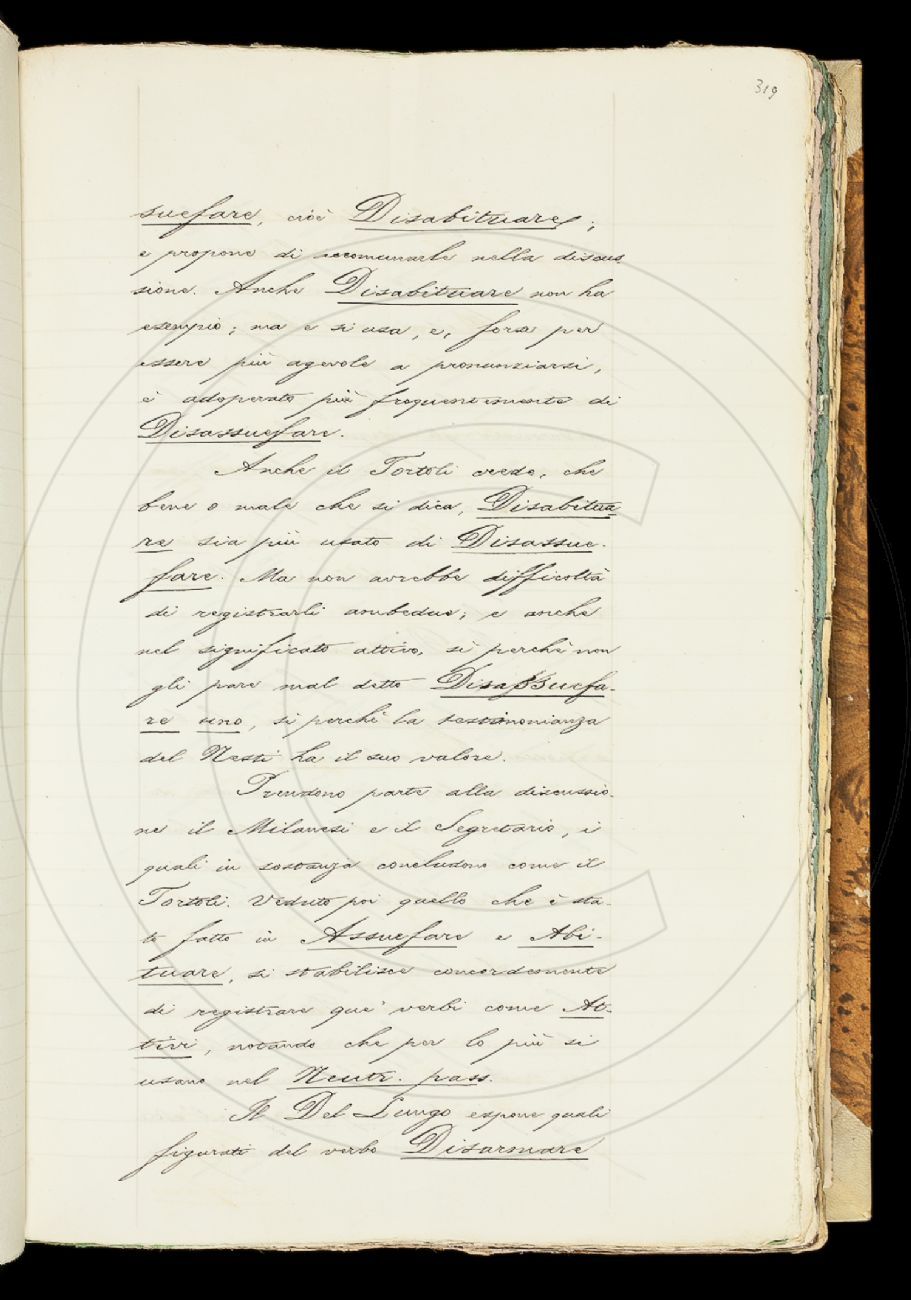 319
suefare, cioè Disabituare;
e propone di accomunarle nella discus-
sione. Anche Disabituare non ha
esempio; ma e si usa, e, forse per
essere più agevole a pronunziarsi,
è adoperato più frequentemente di
Disassuefare.
Anche il Tortoli crede, che
bene o male che si dica, Disabitua-
re sia più usato di Disassue-
fare. Ma non avrebbe difficoltà
di registrarli ambedue; e anche
nel significato attivo, sì perchè non
gli pare mal detto Disassuefa-
re uno, sì perchè la testimonianza
del Nesti ha il suo valore.
Prendono parte alla discussio-
ne il Milanesi e il Segretario, i
quali in sostanza concludono come il
Tortoli. Veduto poi quello che è sta-
to fatto in Assuefare e Abi-
tuare, si stabilisce concordemente
di registrare que' verbi come At-
tivi, notando che per lo più si
usano nel Neutr. pass.
Il Del Lungo espone quali
figurati del verbo Disarmare